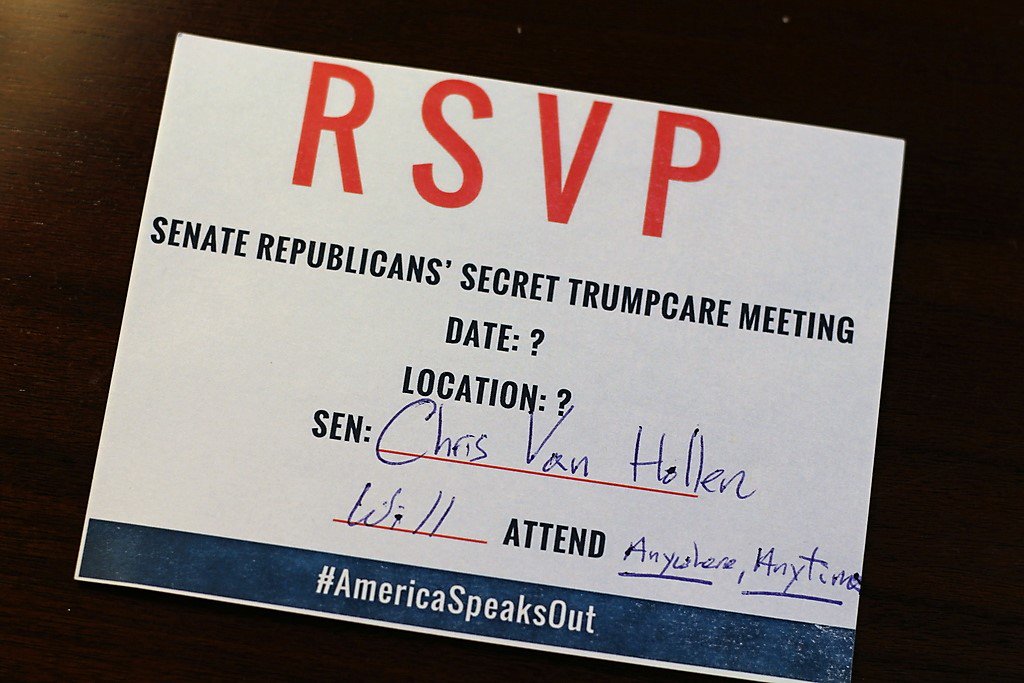 RSVP
SENATE REPUBLICANS' SECRET TRUMPCARE MEETING
DATE: ?
LOCATION: ?
SEN: Chris Van Hollen
Will ATTEND Anywhere, Anytime
#AmericaSpeaksOut